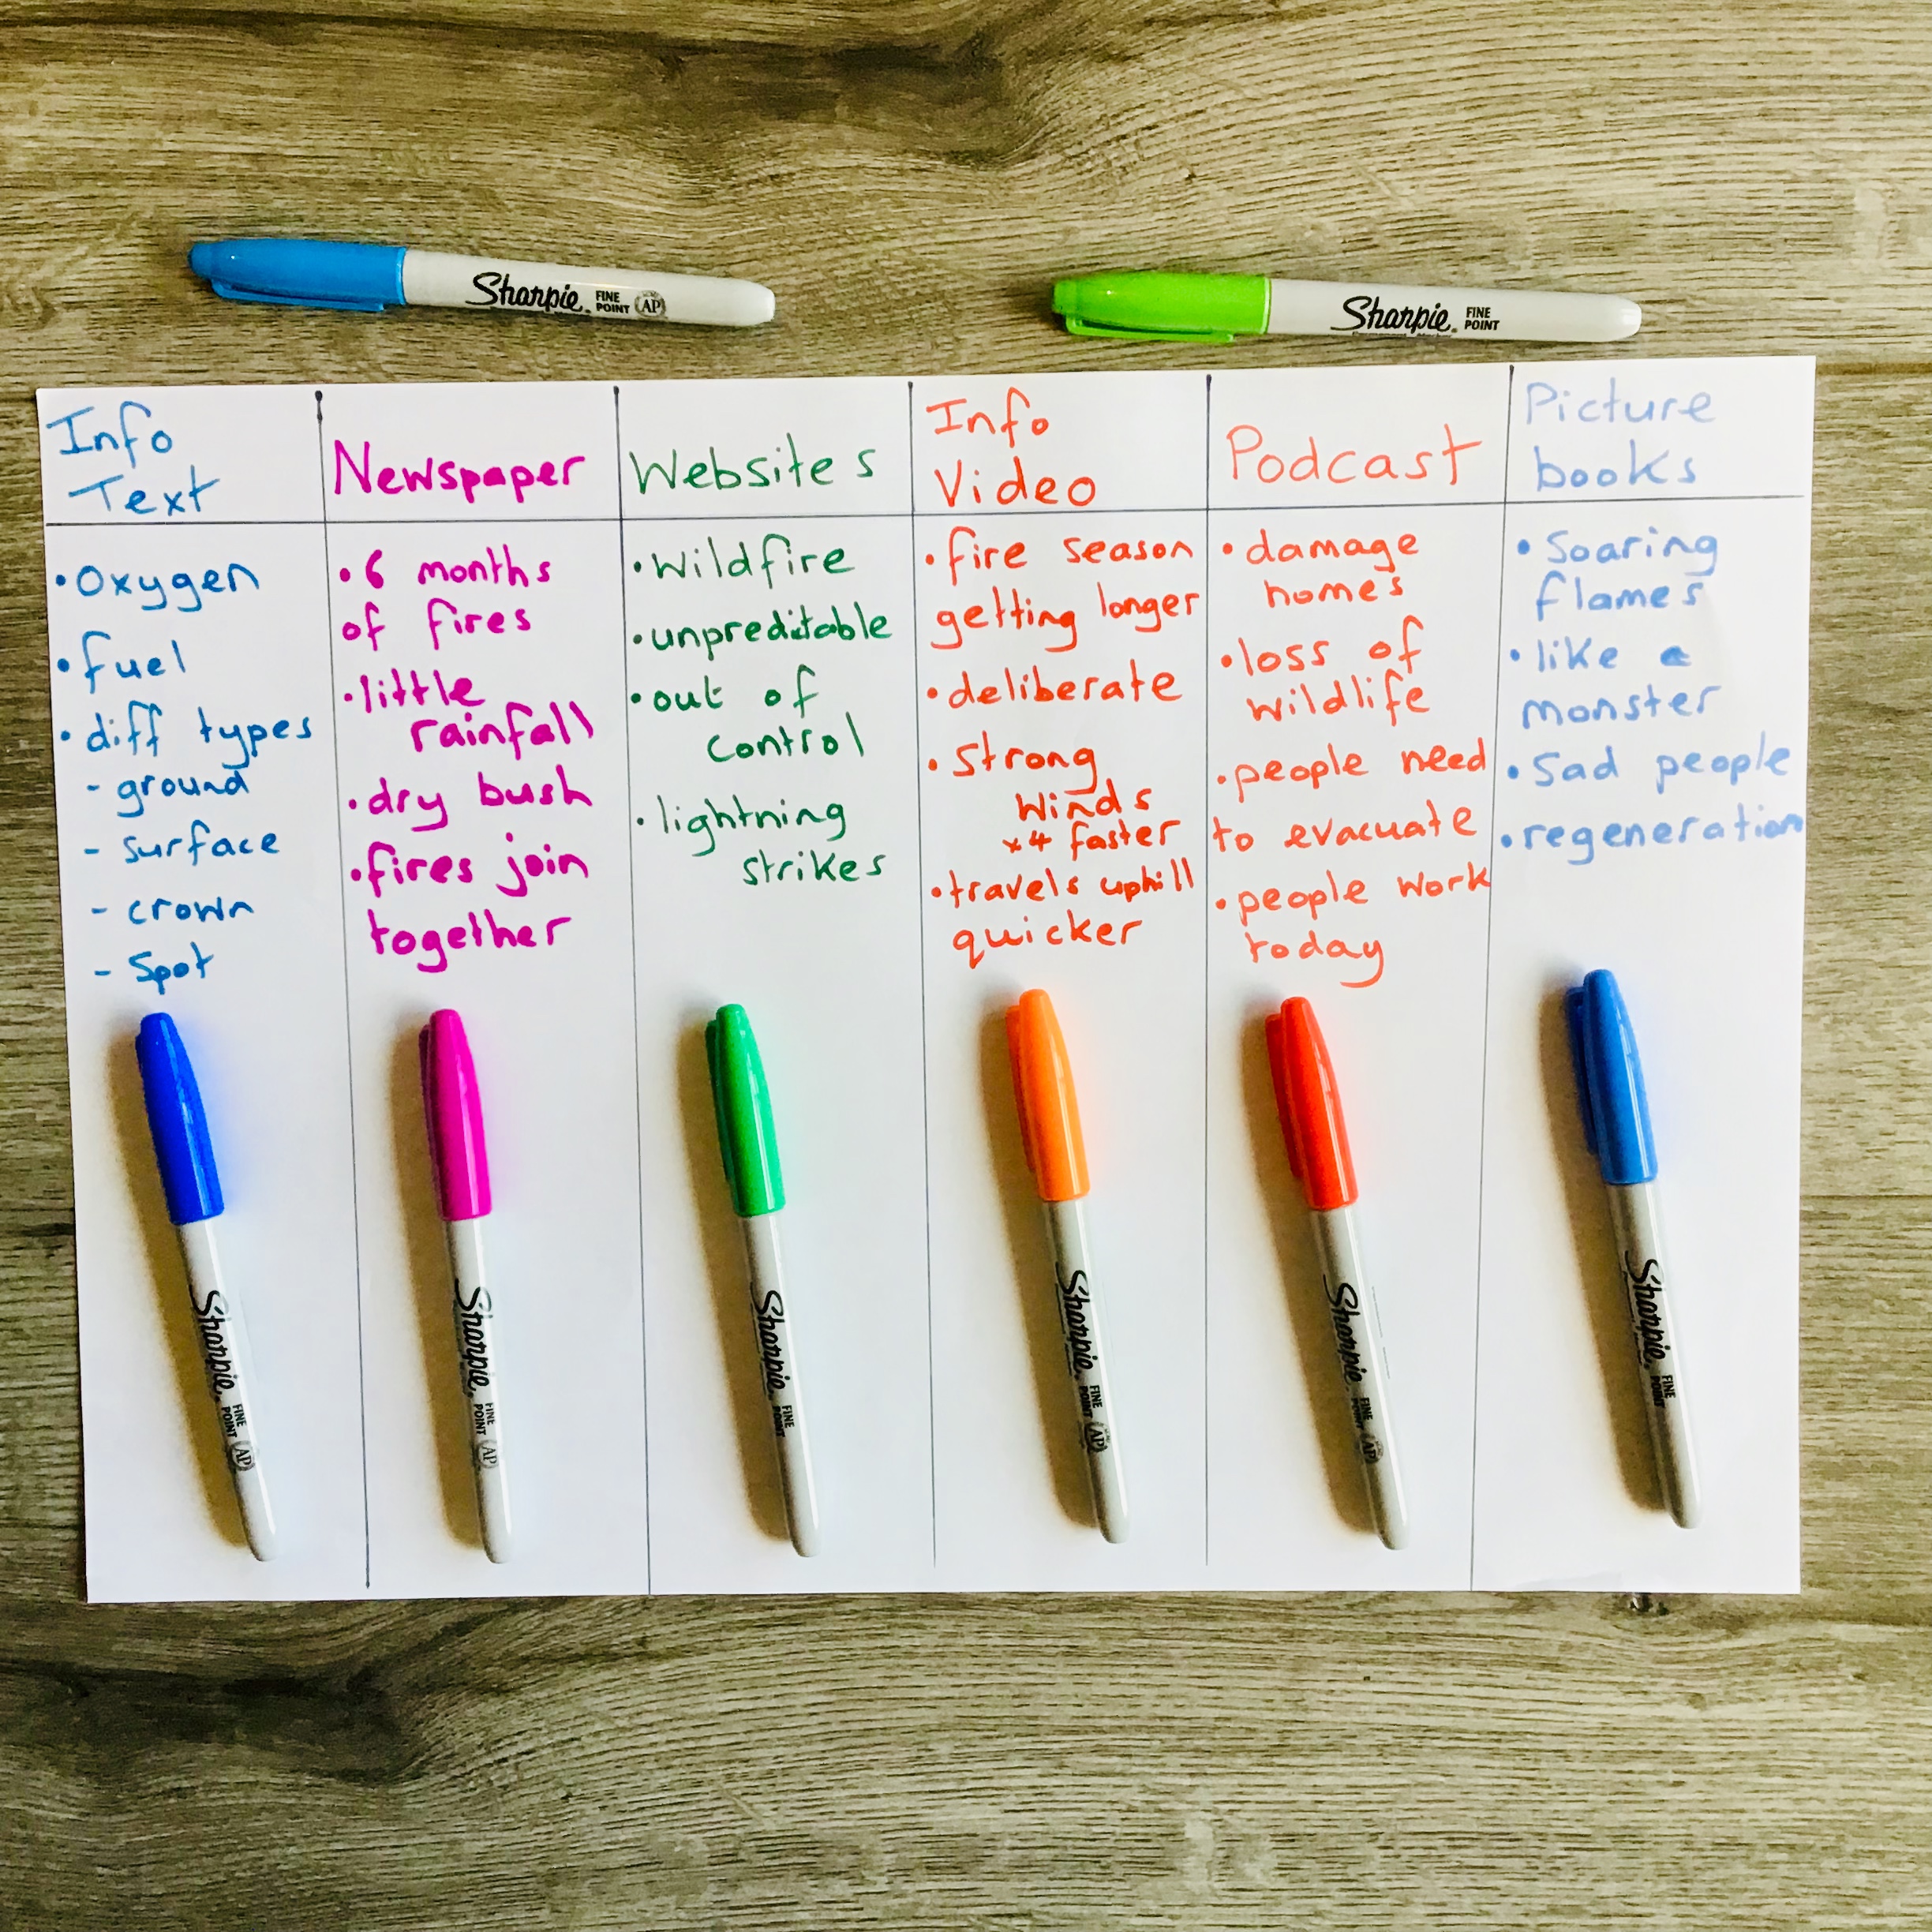 Sharpie. FINE
POINT AP
Sharpie. FINE
POINT
Info
Text
• Oxygen
• fuel
• diff types
- ground
- surface
- crown
- Spot
Newspaper
• 6 months
of fires
• little
rainfall
• dry bush
• fires join
together
Websites
• Wildfire
• unpreditable
• out of
control
• lightning
strikes
Info
Video
• fire season
getting longer
• deliberate
• strong
Winds
x4 faster
• travels uphill
quicker
Podcast
• damage
homes
• loss of
wildlife
• people need
to evacuate
• people work
today
Picture
books
• Soaring
flames
• like a
monster
• Sad people
• regeneration
Sharpie. FINE
POINT AP
Sharpie. FINE
POINT AP
Sharpie. FINE
POINT
Sharpie. FINE
POINT AP
Sharpie. FINE
POINT AP
Sharpie. FINE
POINT